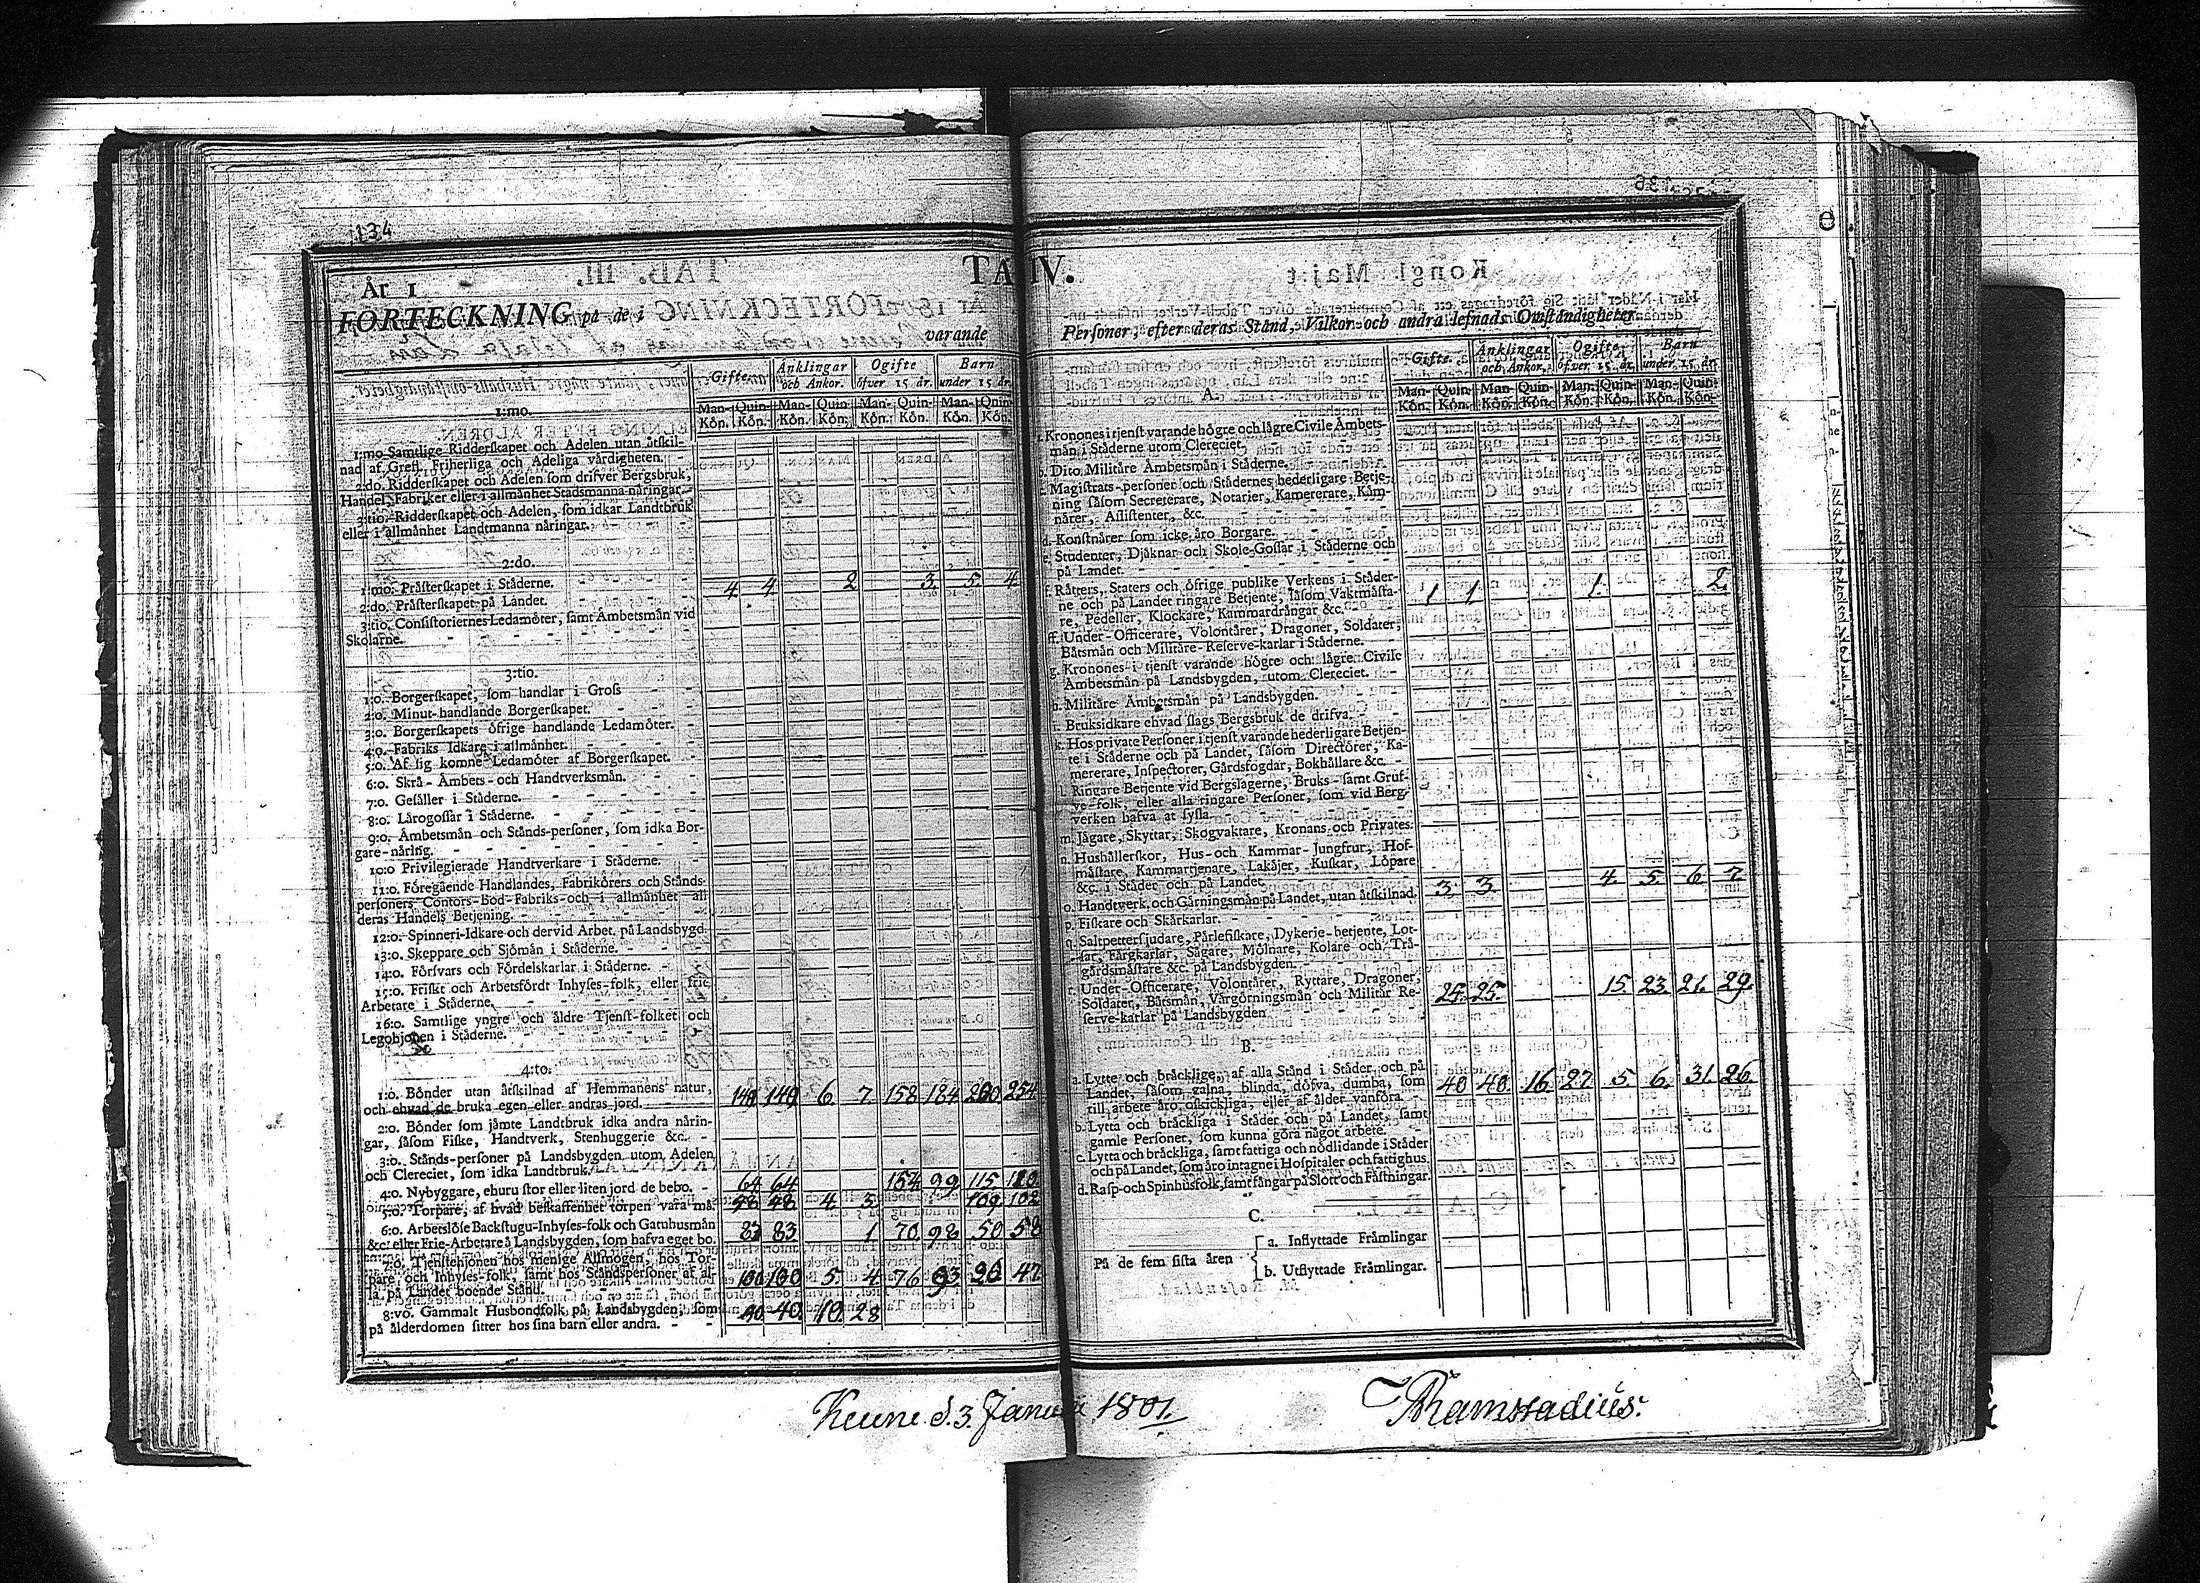 134
TAB. IV.
År 1
FÖRTECKNING på de i
varande
Gifte. Änklingar och Ankor. Ogifte öfver 15 år. Barn under 15 år.
Man-Kön. Quin-Kön. Man-Kön. Quin-Kön. Man-Kön. Quin-Kön. Man-Kön. Quin-Kön.
1:mo.
1:mo Samtlige Ridderskapet och Adelen utan åtskil-
nad af Grefl. Friherliga och Adeliga värdigheten.
2:do. Ridderskapet och Adelen som drifver Bergsbruk,
Handel, Fabriker eller i allmänhet Stadsmanna näringar.
3:tio. Ridderskapet och Adelen, som idkar Landtbruk
eller i allmänhet Landtmanna näringar.
2:do.
1:mo. Prästerskapet i Städerne.
2:do. Prästerskapet på Landet. 4 4 2 3. 5 4.
3:tio. Consistoriernes Ledamöter, samt Ämbetsmän vid
Skolarne.
3:tio.
1:o. Borgerskapet, som handlar i Gross
2:o. Minut-handlande Borgerskapet.
3:o. Borgerskapets öfrige handlande Ledamöter.
4:o. Fabriks Idkare i allmänhet.
5:o. Af sig komne Ledamöter af Borgerskapet.
6:o. Skrå-Ämbets-och Handtverksmän.
7:o. Gesäller i Städerne.
8:o. Lärogossar i Städerne.
9:o. Ämbetsmän och Stånds-personer, som idka Bor-
gare-näring.
10:o Privilegierade Handtverkare i Städerne.
11:o. Föregående Handlandes, Fabrikörers och Stånds-
personers Contors-Bod-Fabriks-och i allmänhet all
deras Handels Betjening.
12:o. Spinneri-Idkare och dervid Arbet. på Landsbygd.
13:o. Skeppare och Sjömän i Städerne.
14:o. Försvars och Fördelskarlar i Städerne.
15:o. Friskt och Arbetsfördt Inhyses-folk, eller frie
Arbetare i Städerne.
16:o. Samtlige yngre och äldre Tjenst-folket och
Legohjonen i Städerne.
4:to.
1:o. Bönder utan åtskilnad af Hemmanens natur,
och ehvad de bruka egen eller andras jord. 140 140 6. 7 158 184 200 254
2:o. Bönder som jämte Landtbruk idka andra närin-
gar, såsom Fiske, Handtverk, Stenhuggerie &c.
3:o. Stånds-personer på Landsbygden utom Adelen
och Clereciet, som idka Landtbruk.
4:o. Nybyggare, ehuru stor eller liten jord de bebo. 64 64 154 99 115. 120
5:o. Torpare, af hvad beskaffenhet torpen vara må. 78 78 4. 3 109 102
6:o. Arbetslöse Backstugu-Inhyses-folk och Gatuhusmän
&c. eller Frie-Arbetare å Landsbygden, som hafva eget bo. 83 83 1 70 98 50 58
7:o. Tjenstehjonen hos menige Allmogen, hos Tor-
pare, och Inhyses-folk, samt hos Ståndspersoner af al-
la på Landet boende Stånd. 100 100 5 4 76 93 20 47
8:vo. Gammalt Husbondfolk på Landsbygden, som
på ålderdomen sitter hos sina barn eller andra. 40 40 10. 28
Personer, efter deras Stånd, Vilkor och andra lefnads Omständigheter
Gifte. Änklingar och Ankor. Ogifte öfver 15 år. Barn under 15 år.
Man-Kön. Quin-Kön. Man-Kön. Quin-Kön. Man-Kön. Quin-Kön. Man-Kön. Quin-Kön.
A.
Kronones i tjenst varande högre och lägre Civile Ämbets-
män i Städerne utom Clereciet.
b. Dito Militäre Ämbetsmän i Städerne.
c. Magistrats-personer och Städernes hederligare Betje-
ning såsom Secreterare, Notarier, Kamererare, Käm-
närer, Assistenter, &c.
d. Konstnärer som icke äro Borgare.
e. Studenter, Djäknar och Skole-Gossar i Städerne och
på Landet.
f. Rätters, Staters och öfrige publike Verkens i Städer-
ne och på Landet ringare Betjente, såsom Vaktmästa-
re, Pedeller, Klockare, Kammardrängar &c. 1 1 1. 2.
ff. Under-Officerare, Volontärer, Dragoner, Soldater,
Båtsmän och Militäre-Reserve-karlar i Städerne.
g. Kronones i tjenst varande högre och lägre Civile
Ämbetsmän på Landsbygden, utom Clereciet.
h. Militäre Ämbetsmän på Landsbygden.
i. Bruksidkare ehvad slags Bergsbruk de drifva.
k. Hos private Personer i tjenst varande hederligare Betjen-
te i Städerne och på Landet, såsom Directörer, Ka-
mererare, Inspectorer, Gårdsfogdar, Bokhållare &c.
l. Ringare Betjente vid Bergslagerne, Bruks-samt Gruf-
ve-folk, eller alla ringare Personer, som vid Berg-
verken hafva at syssla.
m. Jägare, Skyttar, Skogvaktare, Kronans och Privates.
n. Hushållerskor, Hus-och Kammar-Jungfrur, Hof-
mästare, Kammartjenare, Lakäjer, Kuskar, Löpare
&c. i Städer och på Landet.
o. Handtverk, och Gärningsmän på Landet, utan åtskilnad. 3. 3. 4. 5 6 7.
p. Fiskare och Skärkarlar.
q. Saltpettersjudare, Pärlefiskare, Dykerie-betjente, Lot-
sar, Färgkarlar, Sågare, Mölnare, Kolare och Trä-
gårdsmästare &c. på Landsbygden.
r. Under-Officerare, Volontärer, Ryttare, Dragoner,
Soldater, Båtsmän, Värgörningsmän och Militär Re-
serve-karlar på Landsbygden 25. 25. 15. 23. 21. 29.
B.
a. Lytte och bräcklige, af alla Stånd i Städer och på
Landet, såsom galna, blinda, döfva, dumba, som
till arbete äro oskickliga, eller af ålder vanföra. 40 40. 16. 27 5. 6. 31. 26.
b. Lytta och bräckliga i Städer och på Landet, samt
gamle Personer, som kunna göra något arbete.
c. Lytta och bräckliga, samt fattiga och nödlidande i Städer
och på Landet, som äro intagne i Hospitaler och fattighus.
d. Rasp-och Spinhusfolk, samt fångar på Slott och Fästningar.
C.
På de fem sista åren
a. Inflyttade Främlingar
b. Utflyttade Främlingar.
Keune d. 3 Januarii 1801.
Ramstadius.